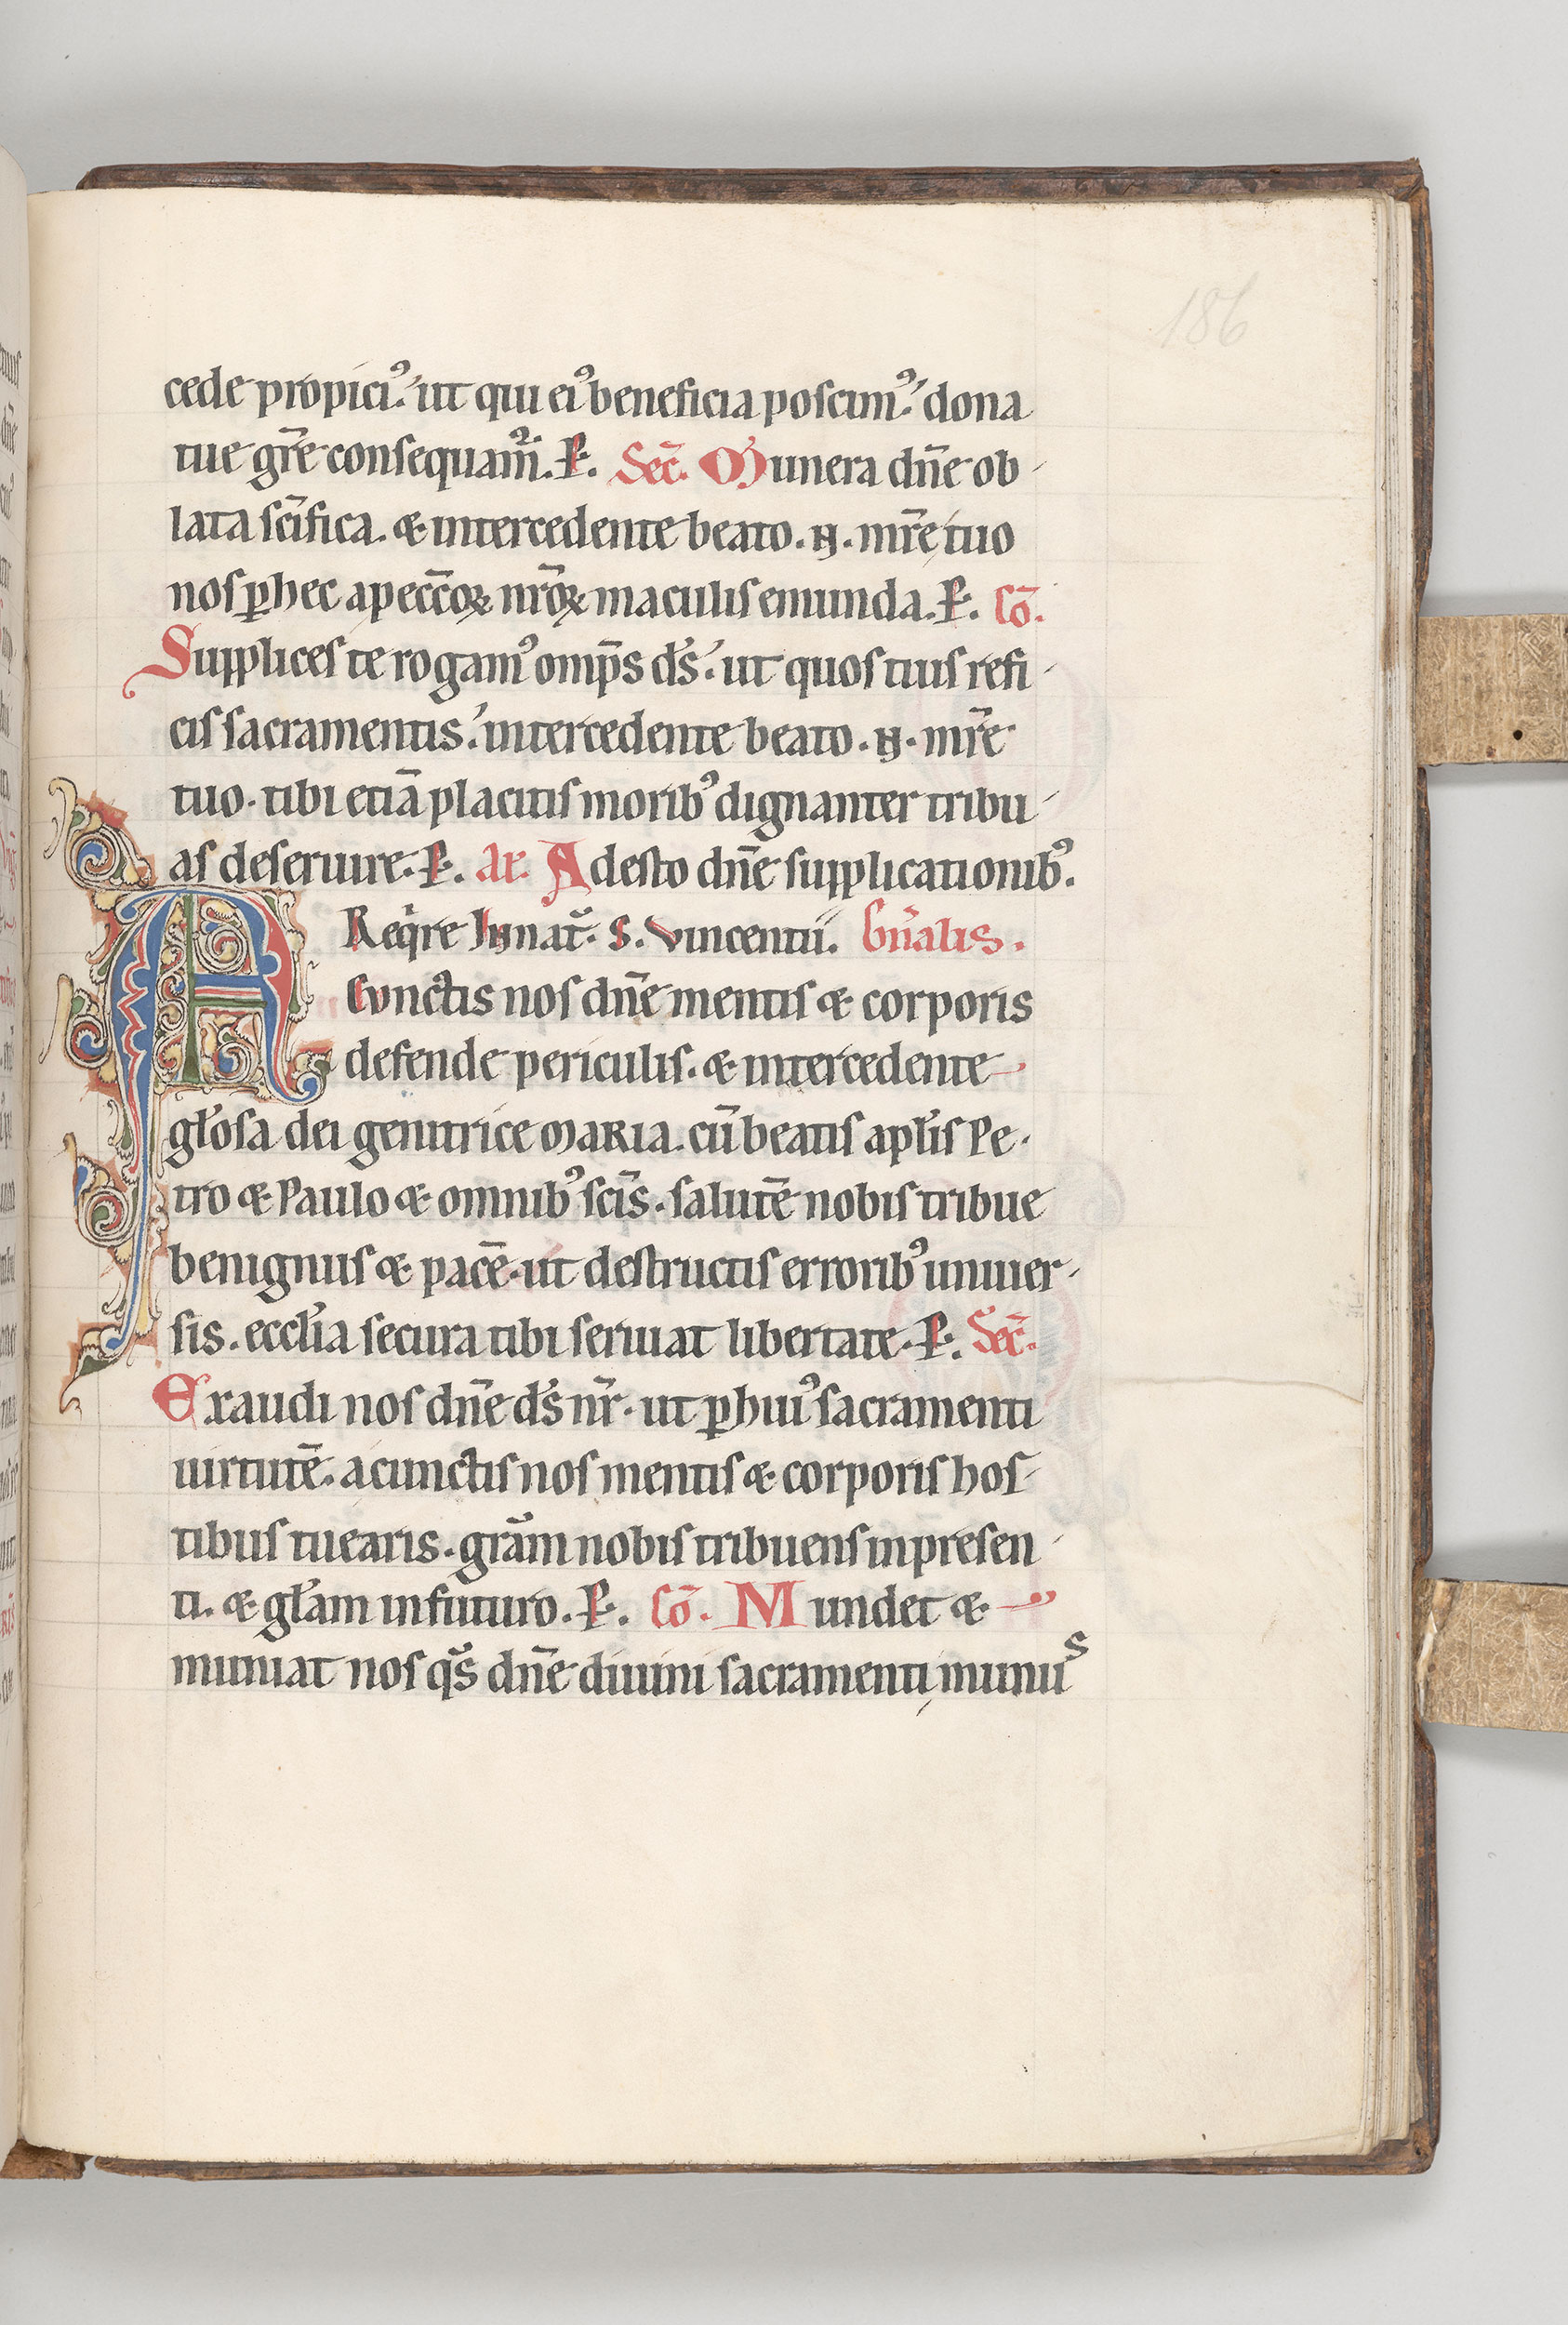 186
cede propiciꝰ. ut qui eiꝰ beneficia poscimꝰ. dona
tue gr̃e consequam̃. P. Sec̃. Munera dñe ob-
lata sc̃ifica. & intercedente beato. N. mr̃e tuo
nos ꝑ hec a pecc̃oꝝ nr̃oꝝ maculis emunda. P. Cõ.
Supplices te rogamꝰ omp̃s ds̃. ut quos tuis refi-
cis sacramentis. intercedente beato. N. mr̃e
tuo. tibi etiã placitis moribꝰ dignanter tribu-
as deseruire. P. al. Adesto dñe supplicationibꝰ.
Reqͥre In nat̃. S. Vincentii. Gñalis.
A Cunctis nos dñe mentis & corporis
defende periculis. & intercedente
gl̃osa dei genitrice MARIA. cũ beatis apl̃is Pe-
tro & Paulo & omnibꝰ sc̃is. salutẽ nobis tribue
benignus & pacẽ. ut destructis erroribꝰ uniuer-
sis. eccl̃ia secura tibi seruiat libertate. P. Sec̃.
Exaudi nos dñe ds̃ nr̃. ut ꝑ huiꝰ sacramenti
uirtutẽ. a cunctis nos mentis & corporis hos-
tibus tuearis. gr̃am nobis tribuens in presen-
ti. & gl̃am in futuro. P. Cõ. Mundet &
muniat nos qs̃ dñe diuini sacramenti munus